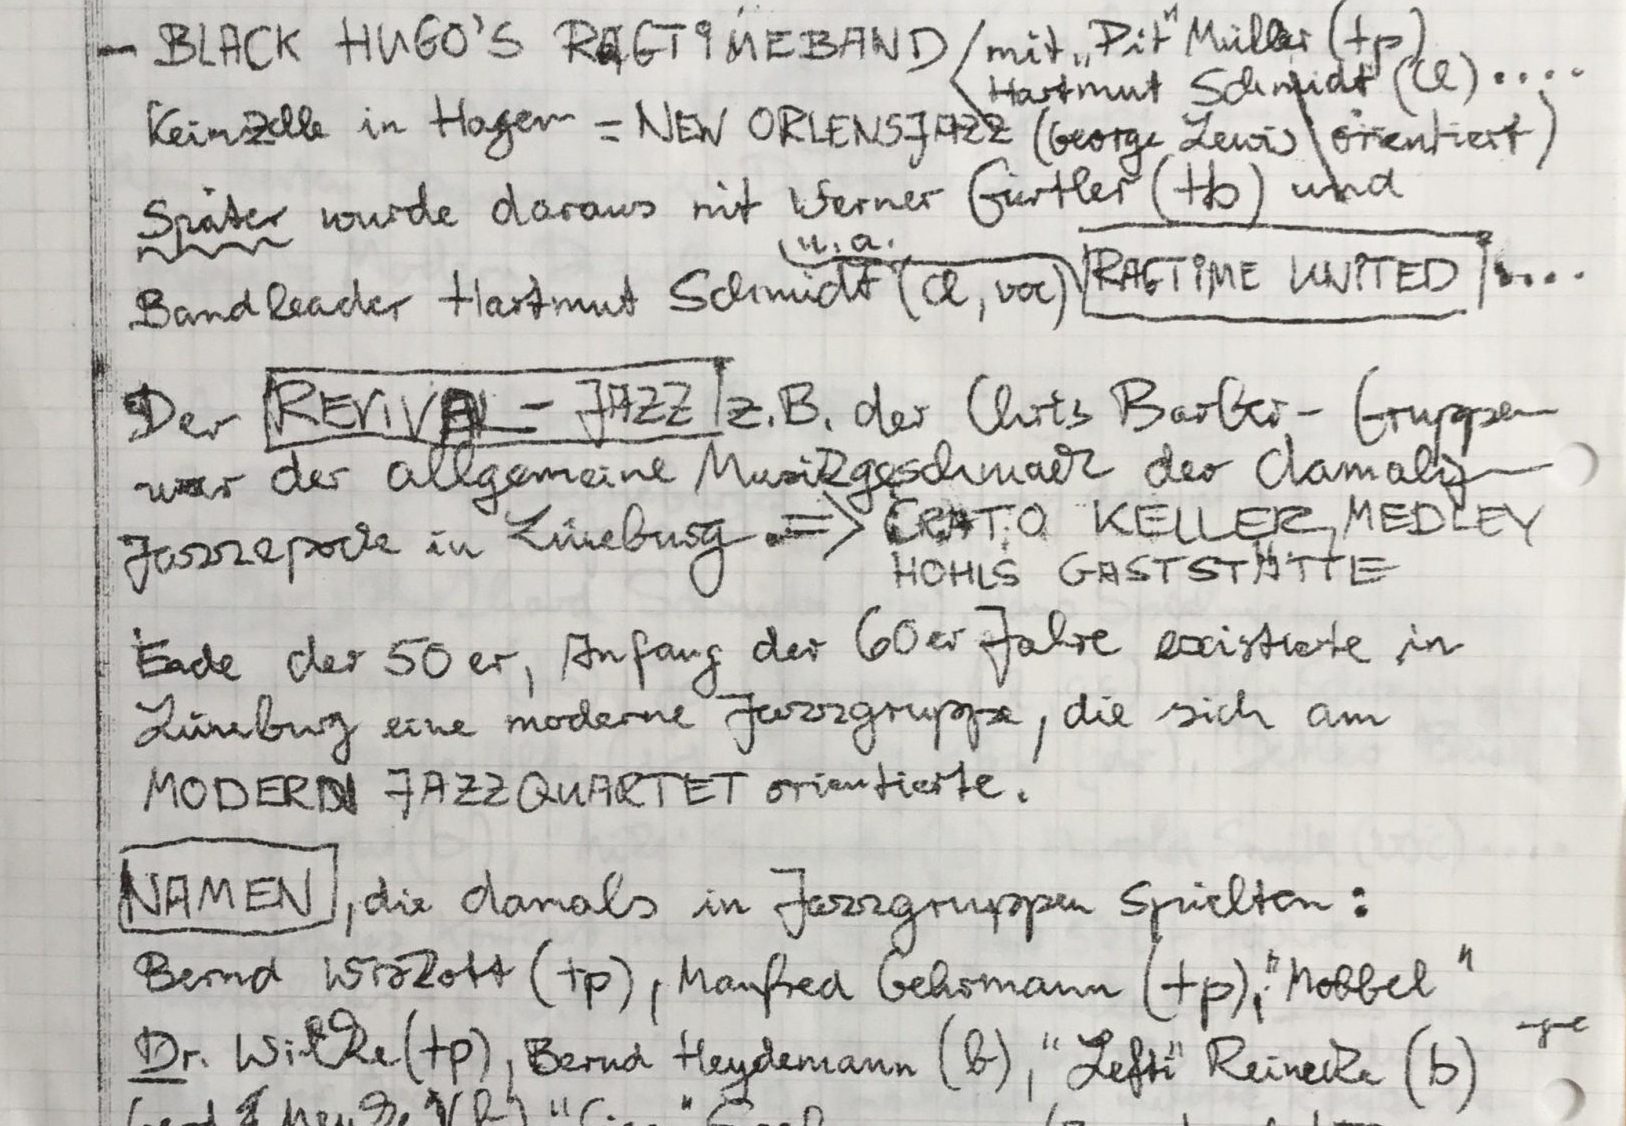 – BLACK HUGO'S RAGTIMEBAND / mit „Pit" Müller (tp)
Hartmut Schmidt (cl) ....
Keimzelle in Hagen = NEW ORLENSJAZZ (George Lewis orientiert)
Später wurde daraus mit Werner Gürtler (tb) und
u.a.
Bandleader Hartmut Schmidt (cl, voc) RAGTIME UNITED ....
Der REVIVAL – JAZZ z.B. der Chris Barber – Gruppen
war der allgemeine Musikgeschmack der damalig
Jazzepoche in Lüneburg => CRATO KELLER, MEDLEY
HOHLS GASTSTÄTTE
Ende der 50er, Anfang der 60er Jahre existierte in
Lüneburg eine moderne Jazzgruppe, die sich am
MODERN JAZZQUARTET orientierte.
NAMEN, die damals in Jazzgruppen spielten:
Bernd Wiskott (tp), Manfred Gehrmann (tp), "Mobbel"
Dr. Wilke (tp), Bernd Heydemann (b), "Lefti" Reinecke (b)